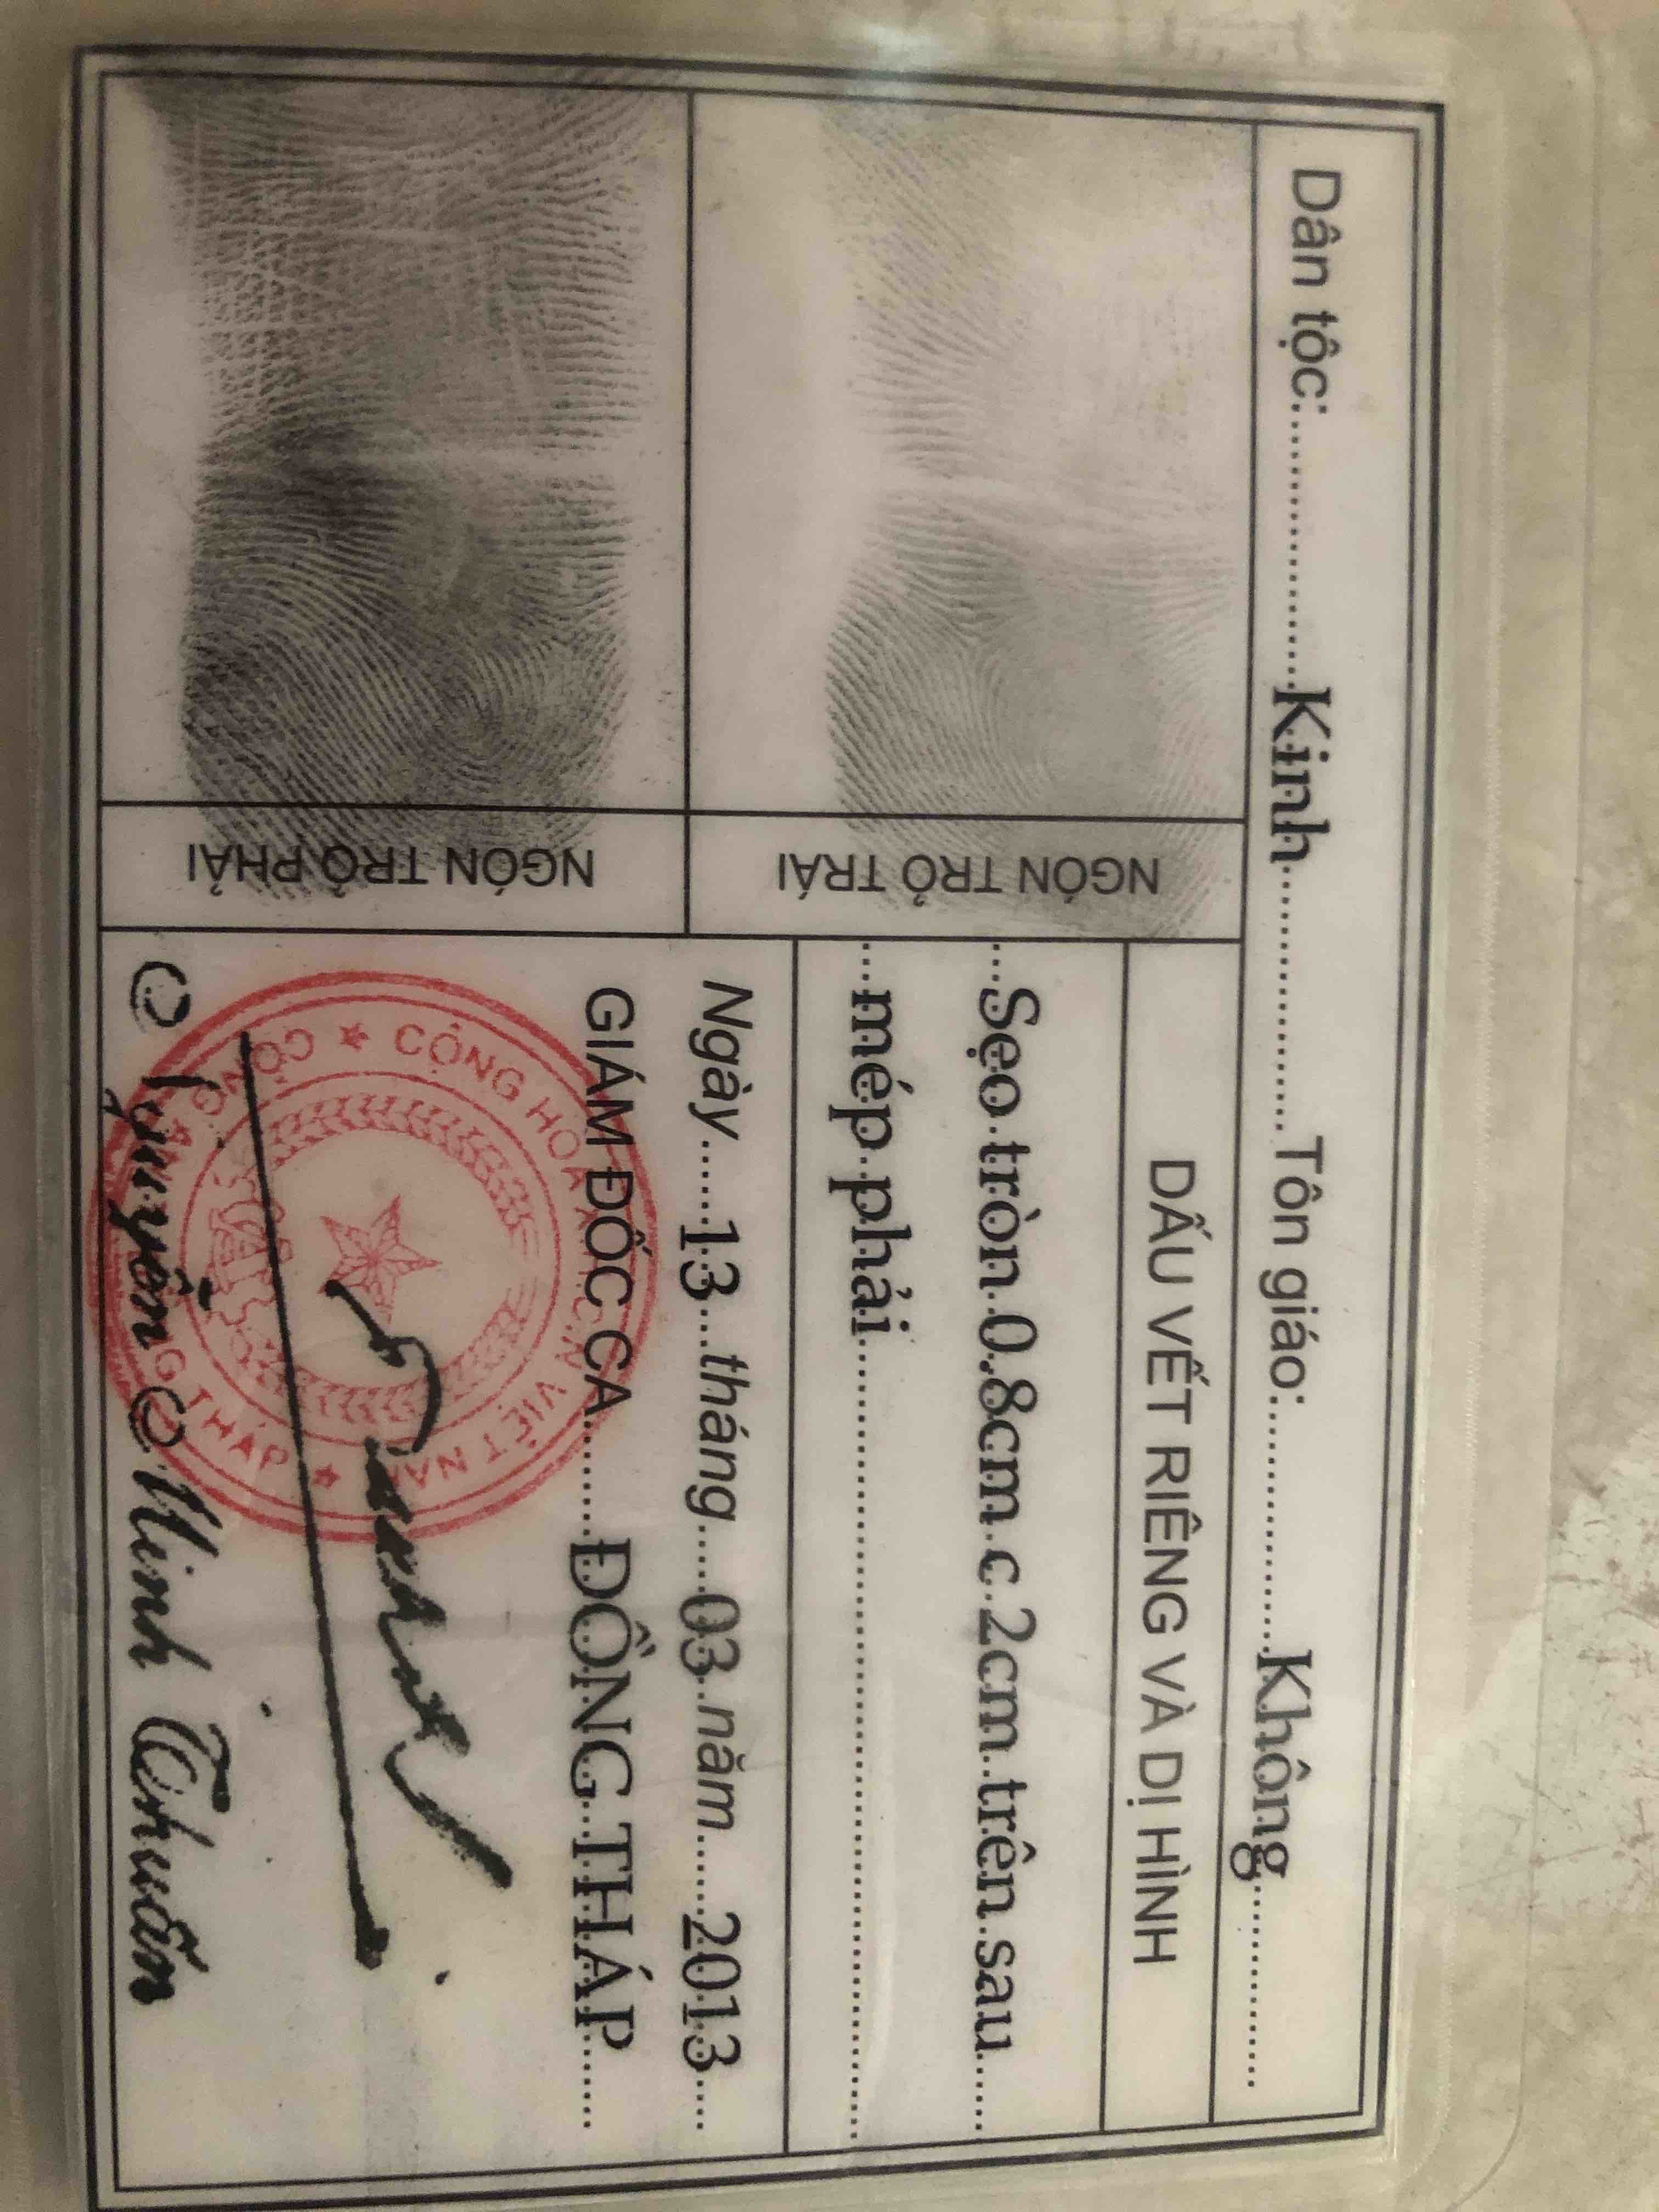 Dân tộc:....................Kinh....................Tôn giáo:....................Không....................
NGÓN TRỎ TRÁI
DẤU VẾT RIÊNG VÀ DỊ HÌNH
....Sẹo tròn 0.8cm c 2cm trên sau.....
....mép phải....................
NGÓN TRỎ PHẢI
Ngày.....13...tháng....03..năm.....2013....
GIÁM ĐỐC CA........ĐỒNG THÁP......
★ CỘNG HÒA X.H.C.N VIỆT NAM ★
CÔNG THÁP
Nguyễn Minh Thuấn